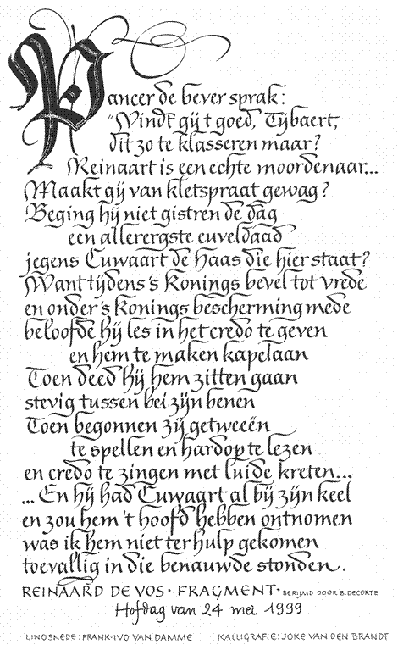 Pancer de bever sprak:
"Vindt gij 't goed, Tybaert,
dit zo te klasseren maar?
Reinaart is een echte moordenaar...
Maakt gij van kletspraat gewag?
Beging hij niet gistren de dag
een allerergste euveldaad
jegens Cuwaart de Haas die hier staat?
Want tijdens 's Konings bevel tot vrede
en onder 's Konings bescherming mede
beloofde hij les in het credo te geven
en hem te maken kapelaan
Toen deed hij hem zitten gaan
stevig tussen bei zijn benen
Toen begonnen zij getweeën
te spellen en hardop te lezen
en credo te zingen met luide kreten...
... En hij had Cuwaart al bij zijn keel
en zou hem 't hoofd hebben ontnomen
was ik hem niet ter hulp gekomen
toevallig in die benauwde stonden.
REINAARD DE VOS · FRAGMENT · BERIJMD DOOR B. DECORTE
Hofdag van 24 mei 1999
LINOSNEDE: FRANK-IVO VAN DAMME KALLIGRAFIE: JOKE VAN DEN BRANDT